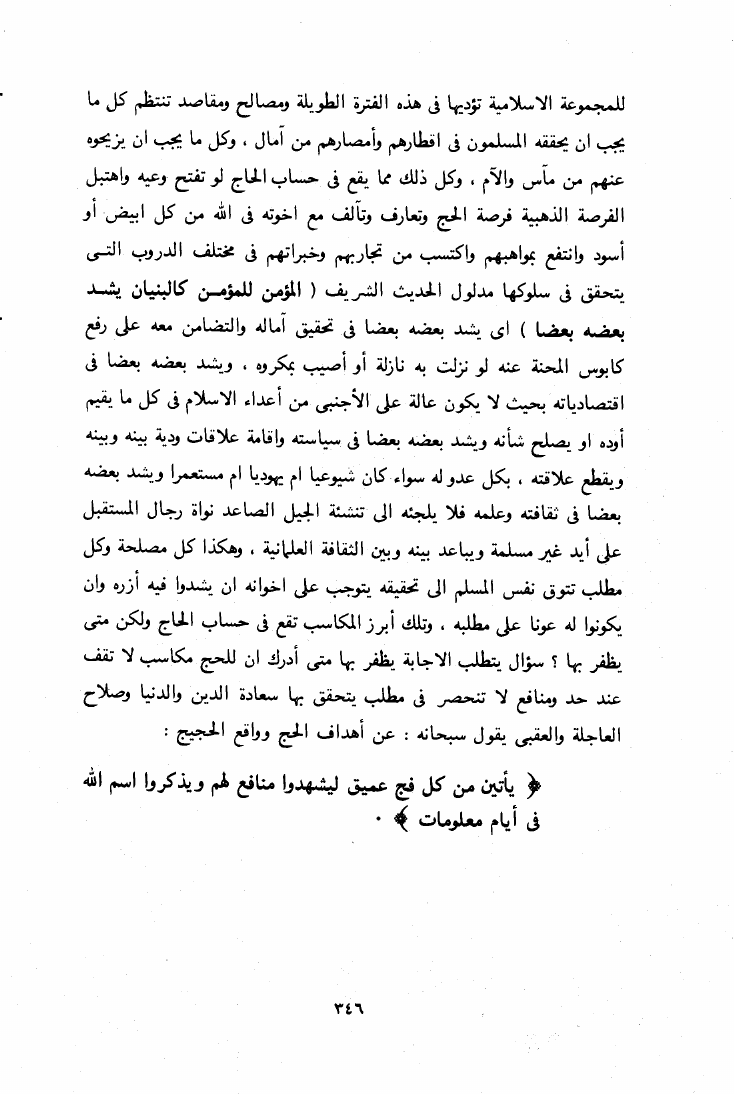 للمجموعة الاسلامية تؤديها فى هذه الفترة الطويلة ومصالح ومقاصد تنتظم كل ما
يجب ان يحققه المسلمون فى اقطارهم وأمصارهم من آمال ، وكل ما يجب ان يزيحوه
عنهم من مآس وآلام ، وكل ذلك مما يقع فى حساب الحاج لو تفتح وعيه واهتبل
الفرصة الذهبية فرصة الحج وتعارف وتآلف مع اخوته فى الله من كل ابيض أو
أسود وانتفع بمواهبهم واكتسب من تجاربهم وخبراتهم فى مختلف الدروب التـى
يتحقق فى سلوكها مدلول الحديث الشريف ( المؤمن للمؤمـن كالبنيان يشـد
بعضه بعضا ) اى يشد بعضه بعضا فى تحقيق آماله والتضامن معه على رفع
كابوس المحنة عنه لو نزلت به نازلة أو أصيب بمكروه ، ويشد بعضه بعضا فى
اقتصادياته بحيث لا يكون عالة على الأجنبى من أعداء الاسلام فى كل ما يقيم
أوده او يصلح شأنه ويشد بعضه بعضا فى سياسته واقامة علاقات ودية بينه وبينه
ويقطع علاقته ، بكل عدو له سواء كان شيوعيا ام يهوديا ام مستعمرا ويشد بعضه
بعضا فى ثقافته وعلمه فلا يلجئه الى تنشئة الجيل الصاعد نواة رجال المستقبل
على أيد غير مسلمة ويباعد بينه وبين الثقافة العلمانية ، وهكذا كل مصلحة وكل
مطلب تتوق نفس المسلم الى تحقيقه يتوجب على اخوانه ان يشدوا فيه أزره وان
يكونوا له عونا على مطلبه ، وتلك أبرز المكاسب تقع فى حساب الحاج ولكن متى
يظفر بها ؟ سؤال يتطلب الاجابة يظفر بها متى أدرك ان للحج مكاسب لا تقف
عند حد ومنافع لا تنحصر فى مطلب يتحقق بها سعادة الدين والدنيا وصلاح
العاجلة والعقبى يقول سبحانه : عن أهداف الحج وواقع الحجيج :
﴿ يأتين من كل فج عميق ليشهدوا منافع لهم ويذكروا اسم الله
فى أيام معلومات ﴾ .
٣٤٦